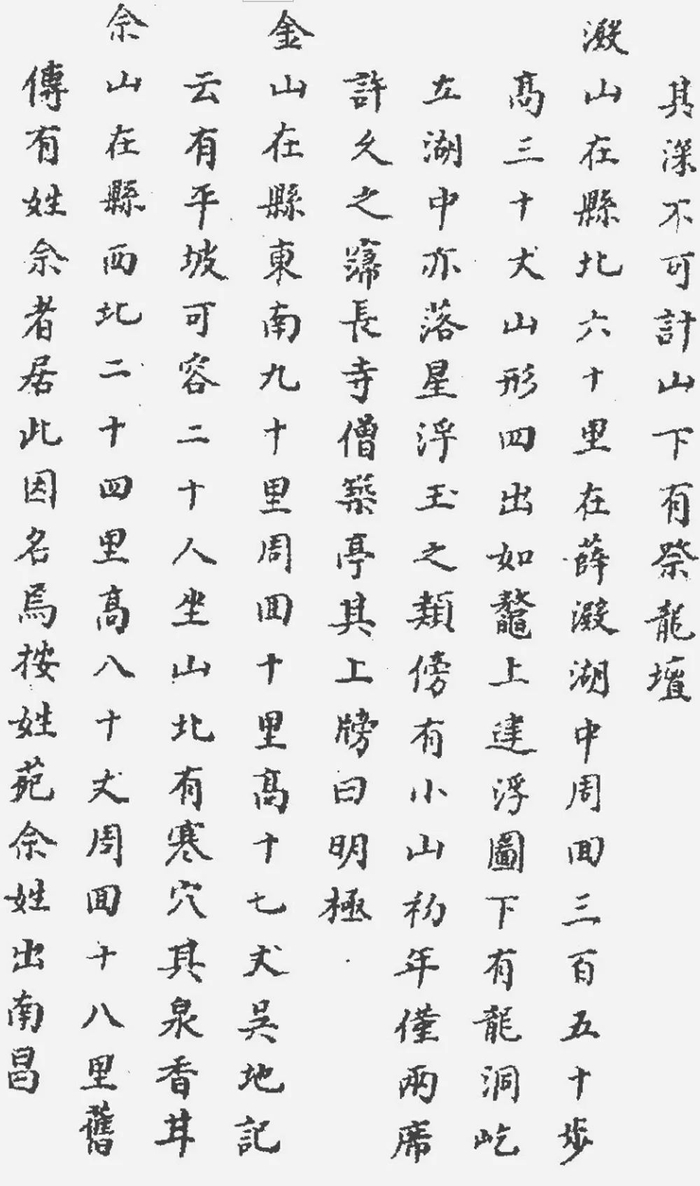 其深不可計山下有祭龍壇
澱山在縣北六十里在薛澱湖中周回三百五十步
高三十丈山形四出如鼇上建浮圖下有龍洞屹
立湖中亦落星浮玉之類傍有小山初年僅兩席
許久之寖長寺僧築亭其上牓曰明極
金山在縣東南九十里周回十里高十七丈吳地記
云有平坡可容二十人坐山北有寒穴其泉香甘
佘山在縣西北二十四里高八十丈周回十八里舊
傳有姓佘者居此因名焉按姓苑佘姓出南昌